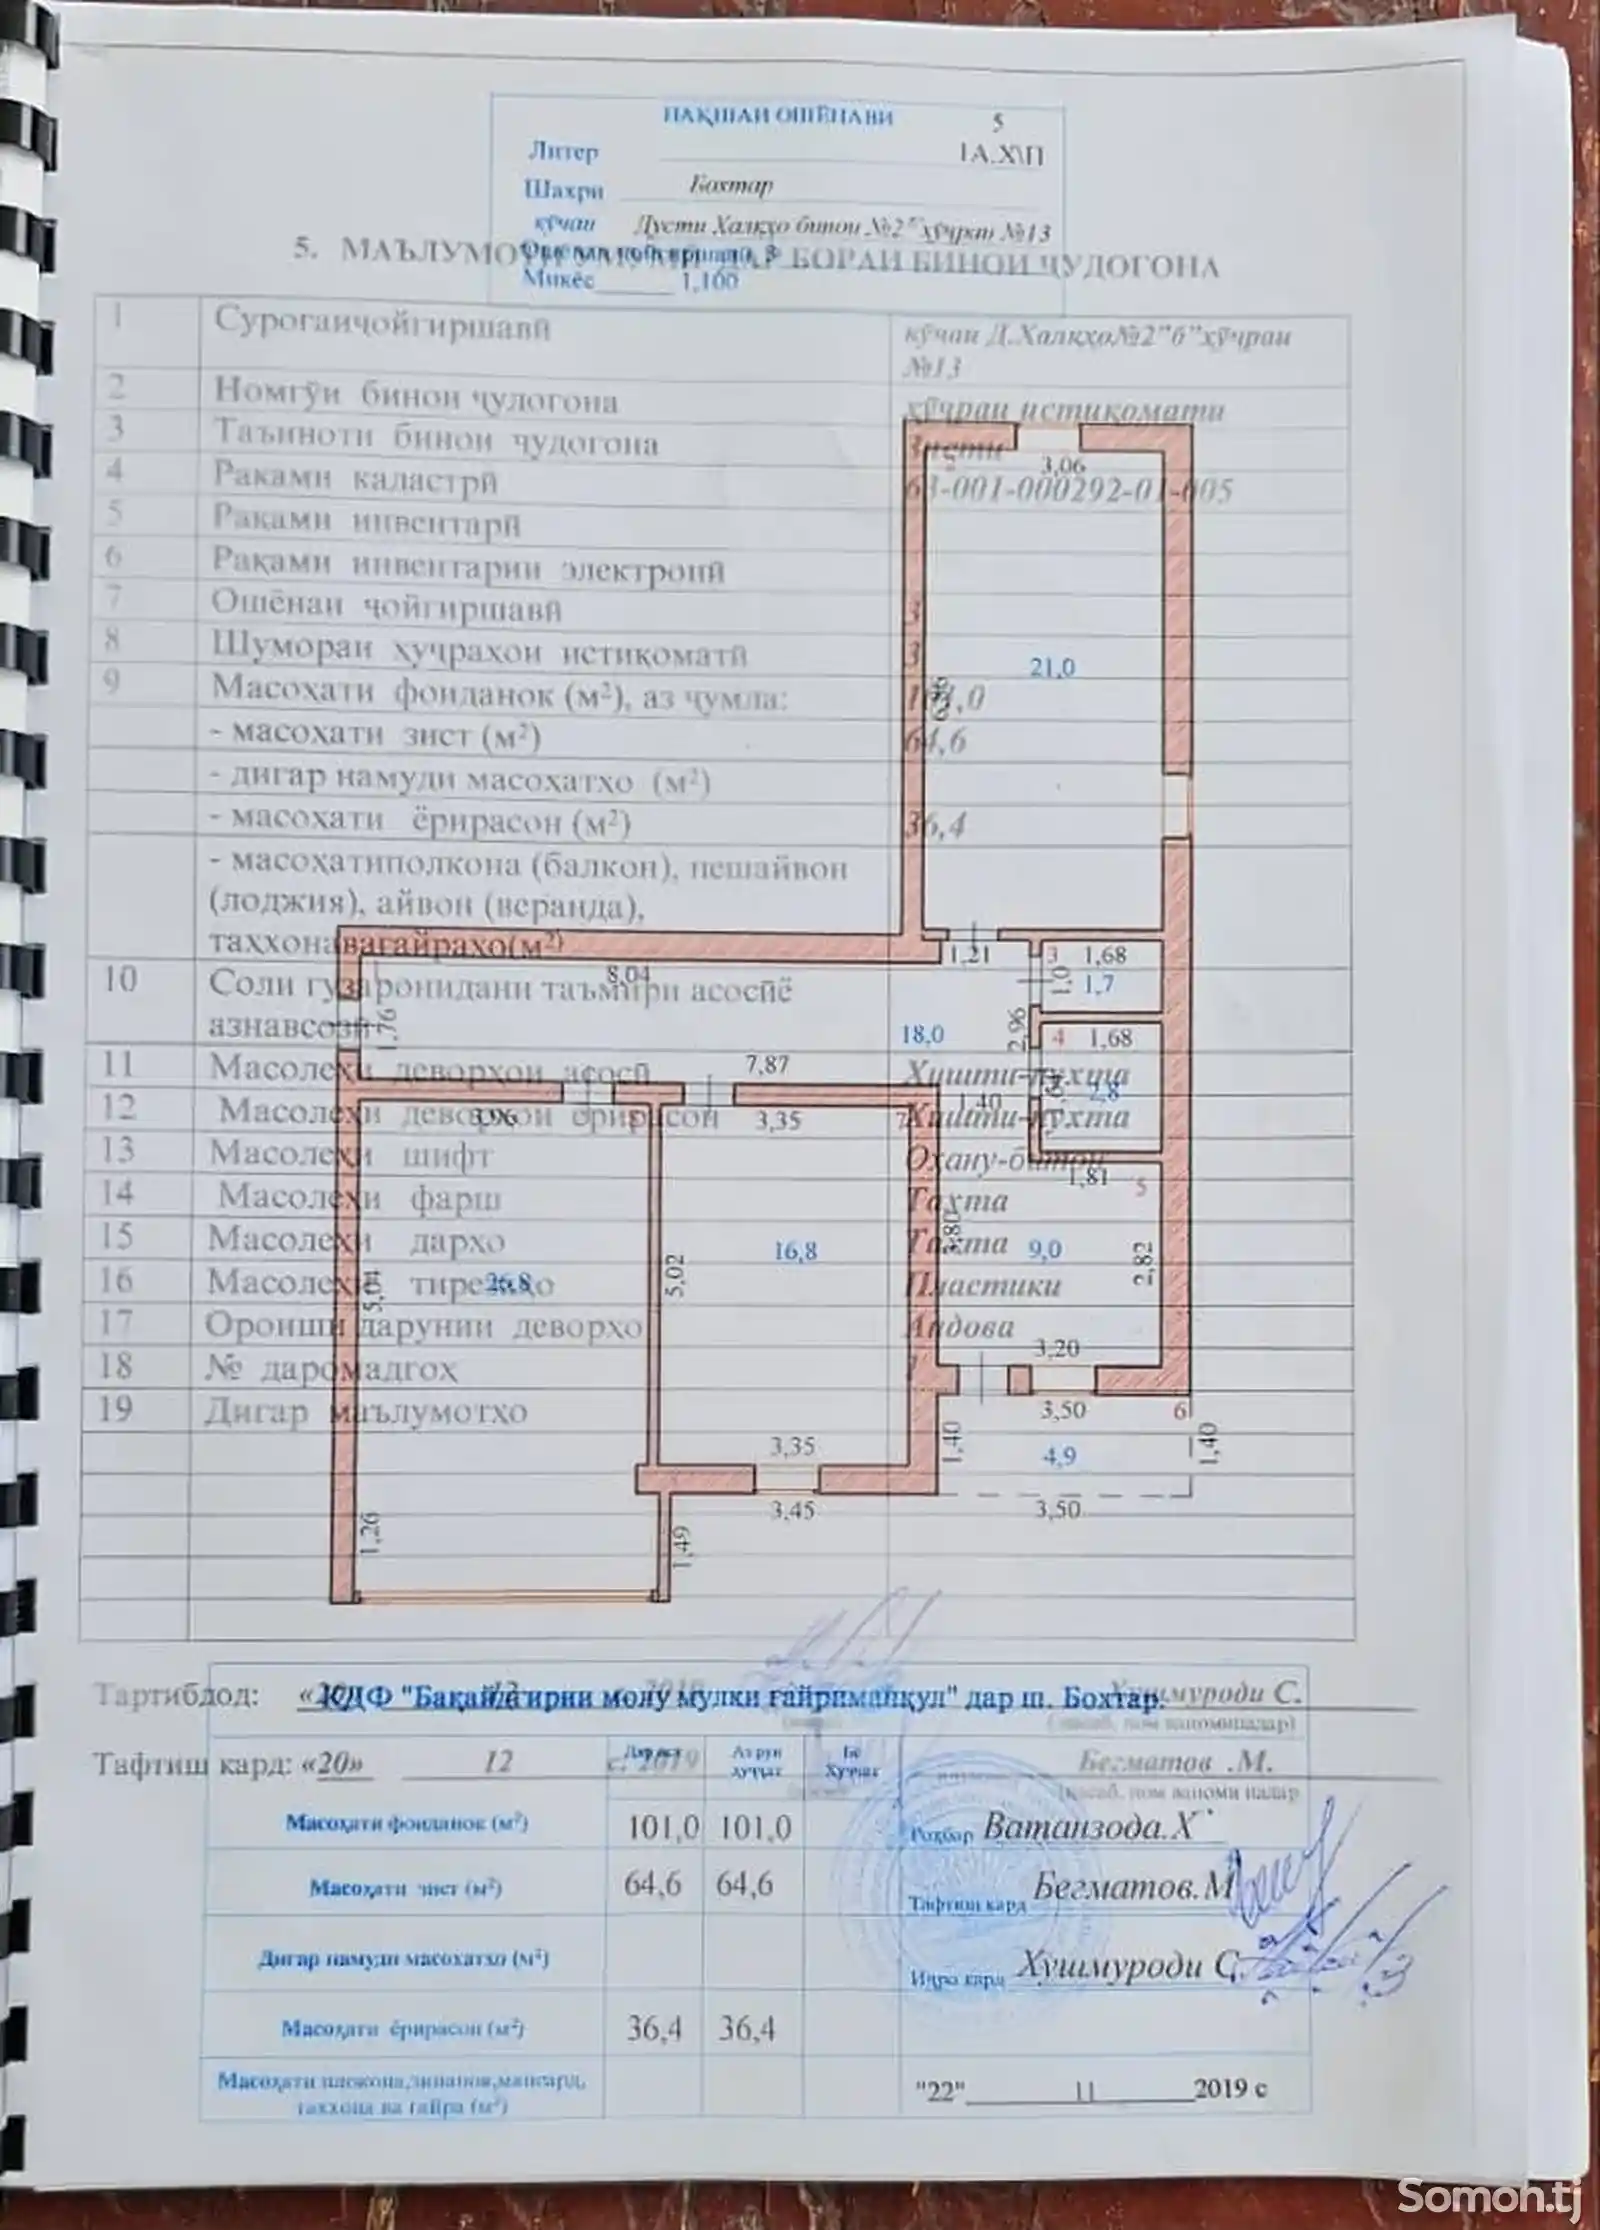 НАҚШАИ ОШЁНАВИ
5
Литер 1А.Х\П
Шахри Бохтар
кӯчаи Дусти Халқҳо бинои №2 хӯҷраи №13
Микёс 1,100
5. МАЪЛУМОТИ УМУМӢ ДАР БОРАИ БИНОИ ҶУДОГОНА
1 Суроғаиҷойгиршавӣ кӯчаи Д.Халқҳо№2"б"хӯҷраи
№13
2 Номгӯи бинои ҷудогона хӯҷраи истиқомати
3 Таъиноти бинои ҷудогона Зисти
4 Раками каластрӣ 63-001-000292-01-005
5 Рақами инвентарӣ
6 Рақами инвентарии электронӣ
7 Ошёнаи ҷойгиршавӣ 3
8 Шумораи ҳуҷраҳои истиқоматӣ 3
9 Масоҳати фоиданок (м²), аз ҷумла: 101,0
- масоҳати зист (м²) 64,6
- дигар намуди масоҳатҳо (м²)
- масоҳати ёрирасон (м²) 36,4
- масоҳатиполкона (балкон), пешайвон
(лоджия), айвон (веранда),
таҳхонавағайраҳо(м²)
10 Соли гузаронидани таъмири асосӣё
азнавсозӣ
11 Масолеҳи деворҳои асосӣ Хишти-пухта
12 Масолеҳи деворҳои ёрирасон Хишти-пухта
13 Масолеҳи шифт Оҳану-бетон
14 Масолеҳи фарш Тахта
15 Масолеҳи дарҳо Тахта
16 Масолеҳи тирезаҳо Пластики
17 Ороиши дарунии деворҳо Андова
18 № даромадгоҳ 1
19 Дигар маълумотҳо
3,06
21,0
1,21
3 1,68
1,10
1,7
8,04
1,76
18,0
2,96
4 1,68
7,87
2,8
1,40
3,96
3,35
7
1,81
5
16,8
9,0
3,80
2,82
26,8
5,02
3,20
3,50
6
1,40
1,40
3,35
4,9
3,45
3,50
1,26
1,49
Тартибдод: Хушмуроди С.
КДФ "Бақайдгирии молу мулки ғайриманқул" дар ш. Бохтар.
Тафтиш кард: «20» 12 с. 2019 Бегматов .М.
Аз рӯи
ҳуҷҷат
Бе
Ҳуҷҷат
Масоҳати фоиданок (м²) 101,0 101,0 Роҳбар Ватанзода.Х
Масоҳати зист (м²) 64,6 64,6 Тафтиш кард Бегматов.М
Дигар намуди масоҳатҳо (м²) Иҷро кард Хушмуроди С
Масоҳати ёрирасон (м²) 36,4 36,4
"22" 11 2019 с
Somon.tj